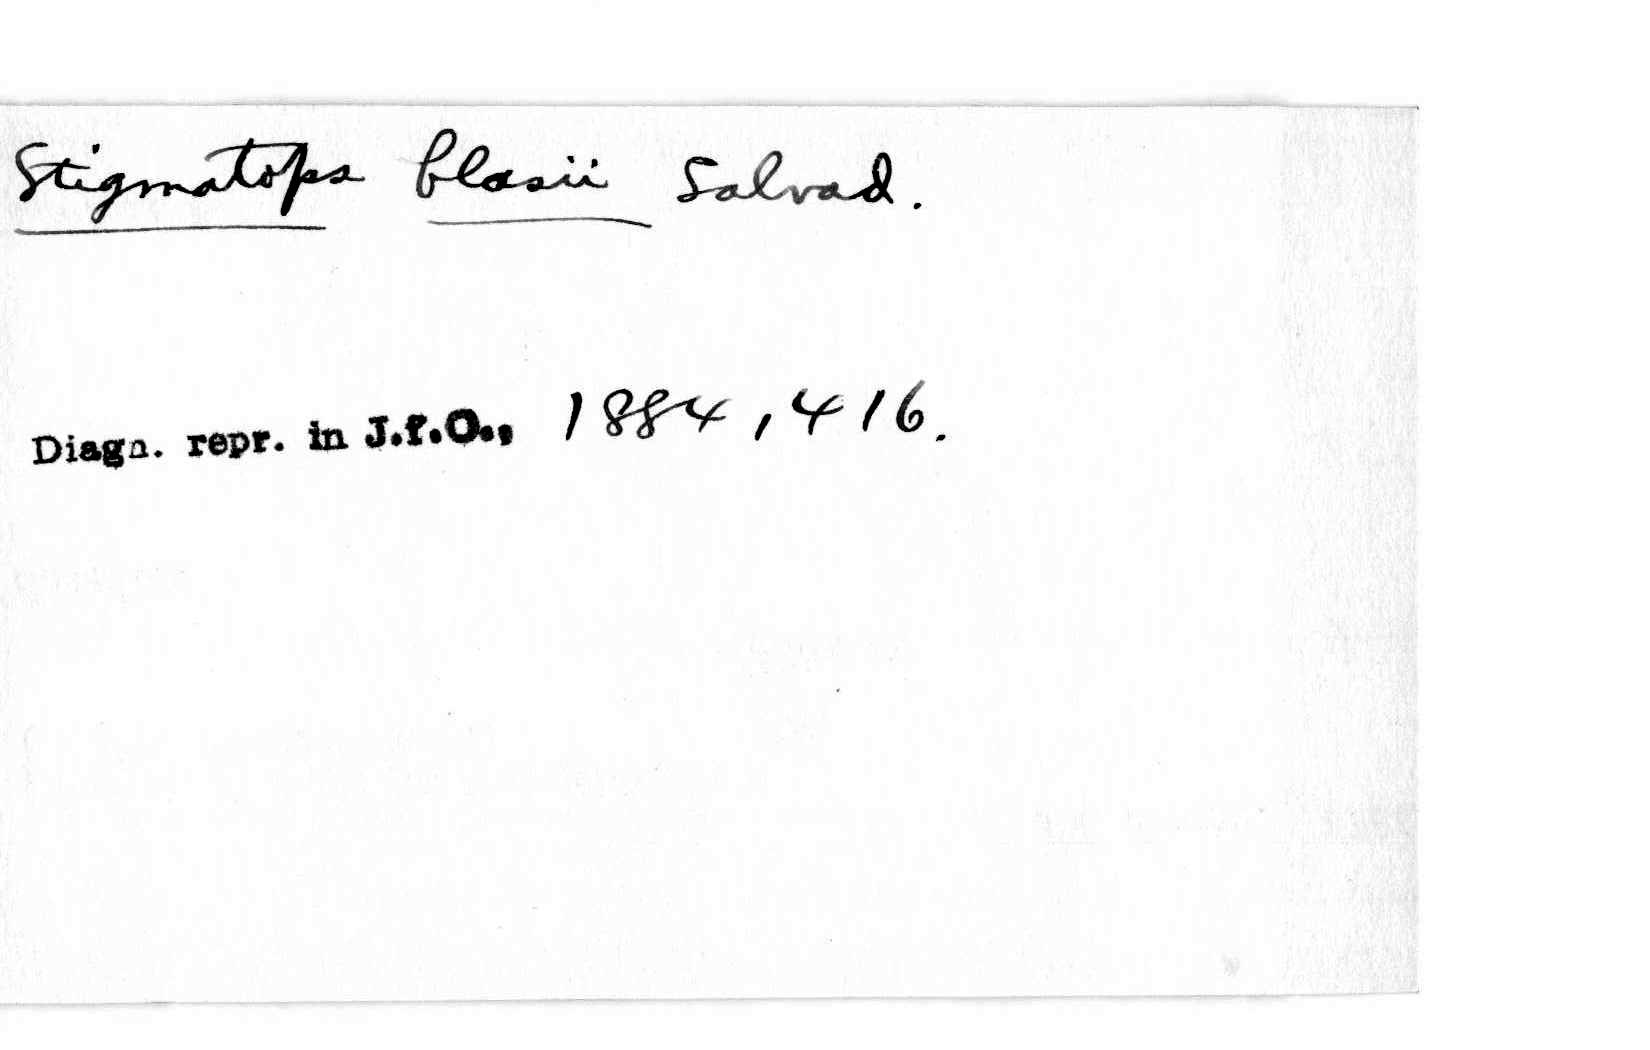 Stigmatops blasii Salvad.
Diagn. repr. in J.f.O., 1884, 416.